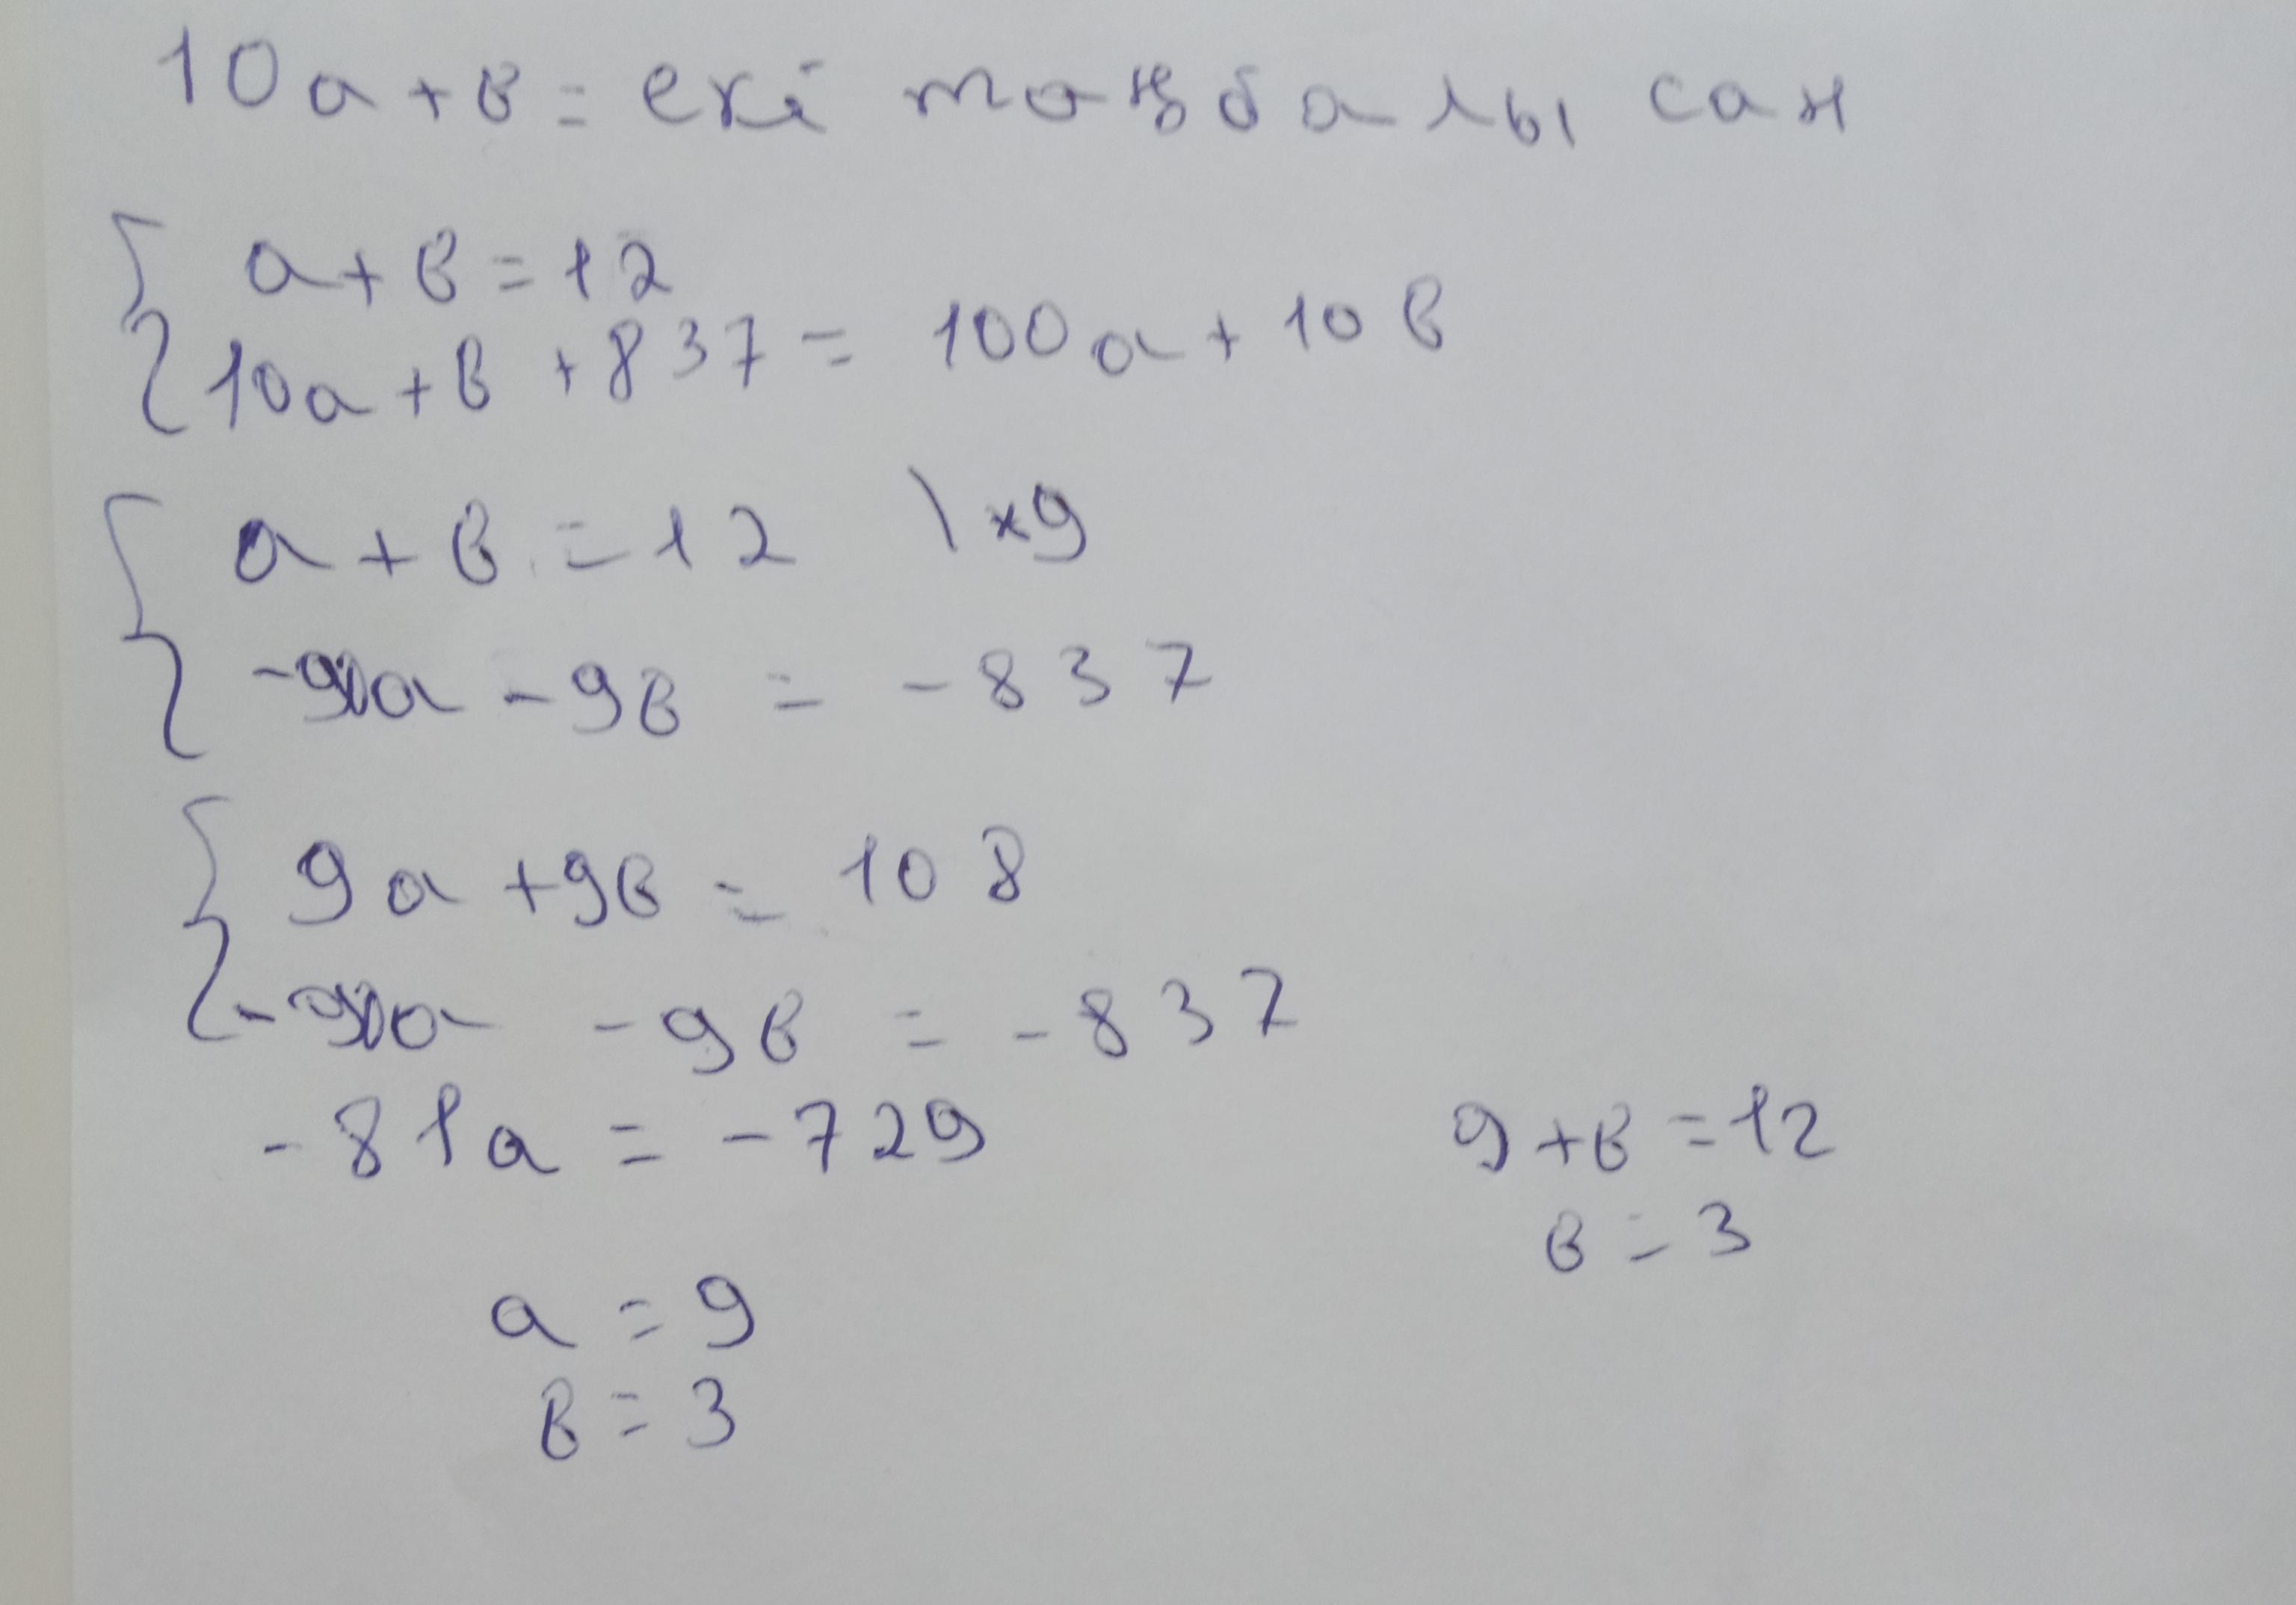 10a+в = екі таңбалы сан
a+в=12
10a+в+837= 100a+10в
a+в=12 \×9
-90a-9в = -837
9a+9в = 108
-90a -9в = -837
-81a = -729
9+в=12
в=3
a=9
в=3